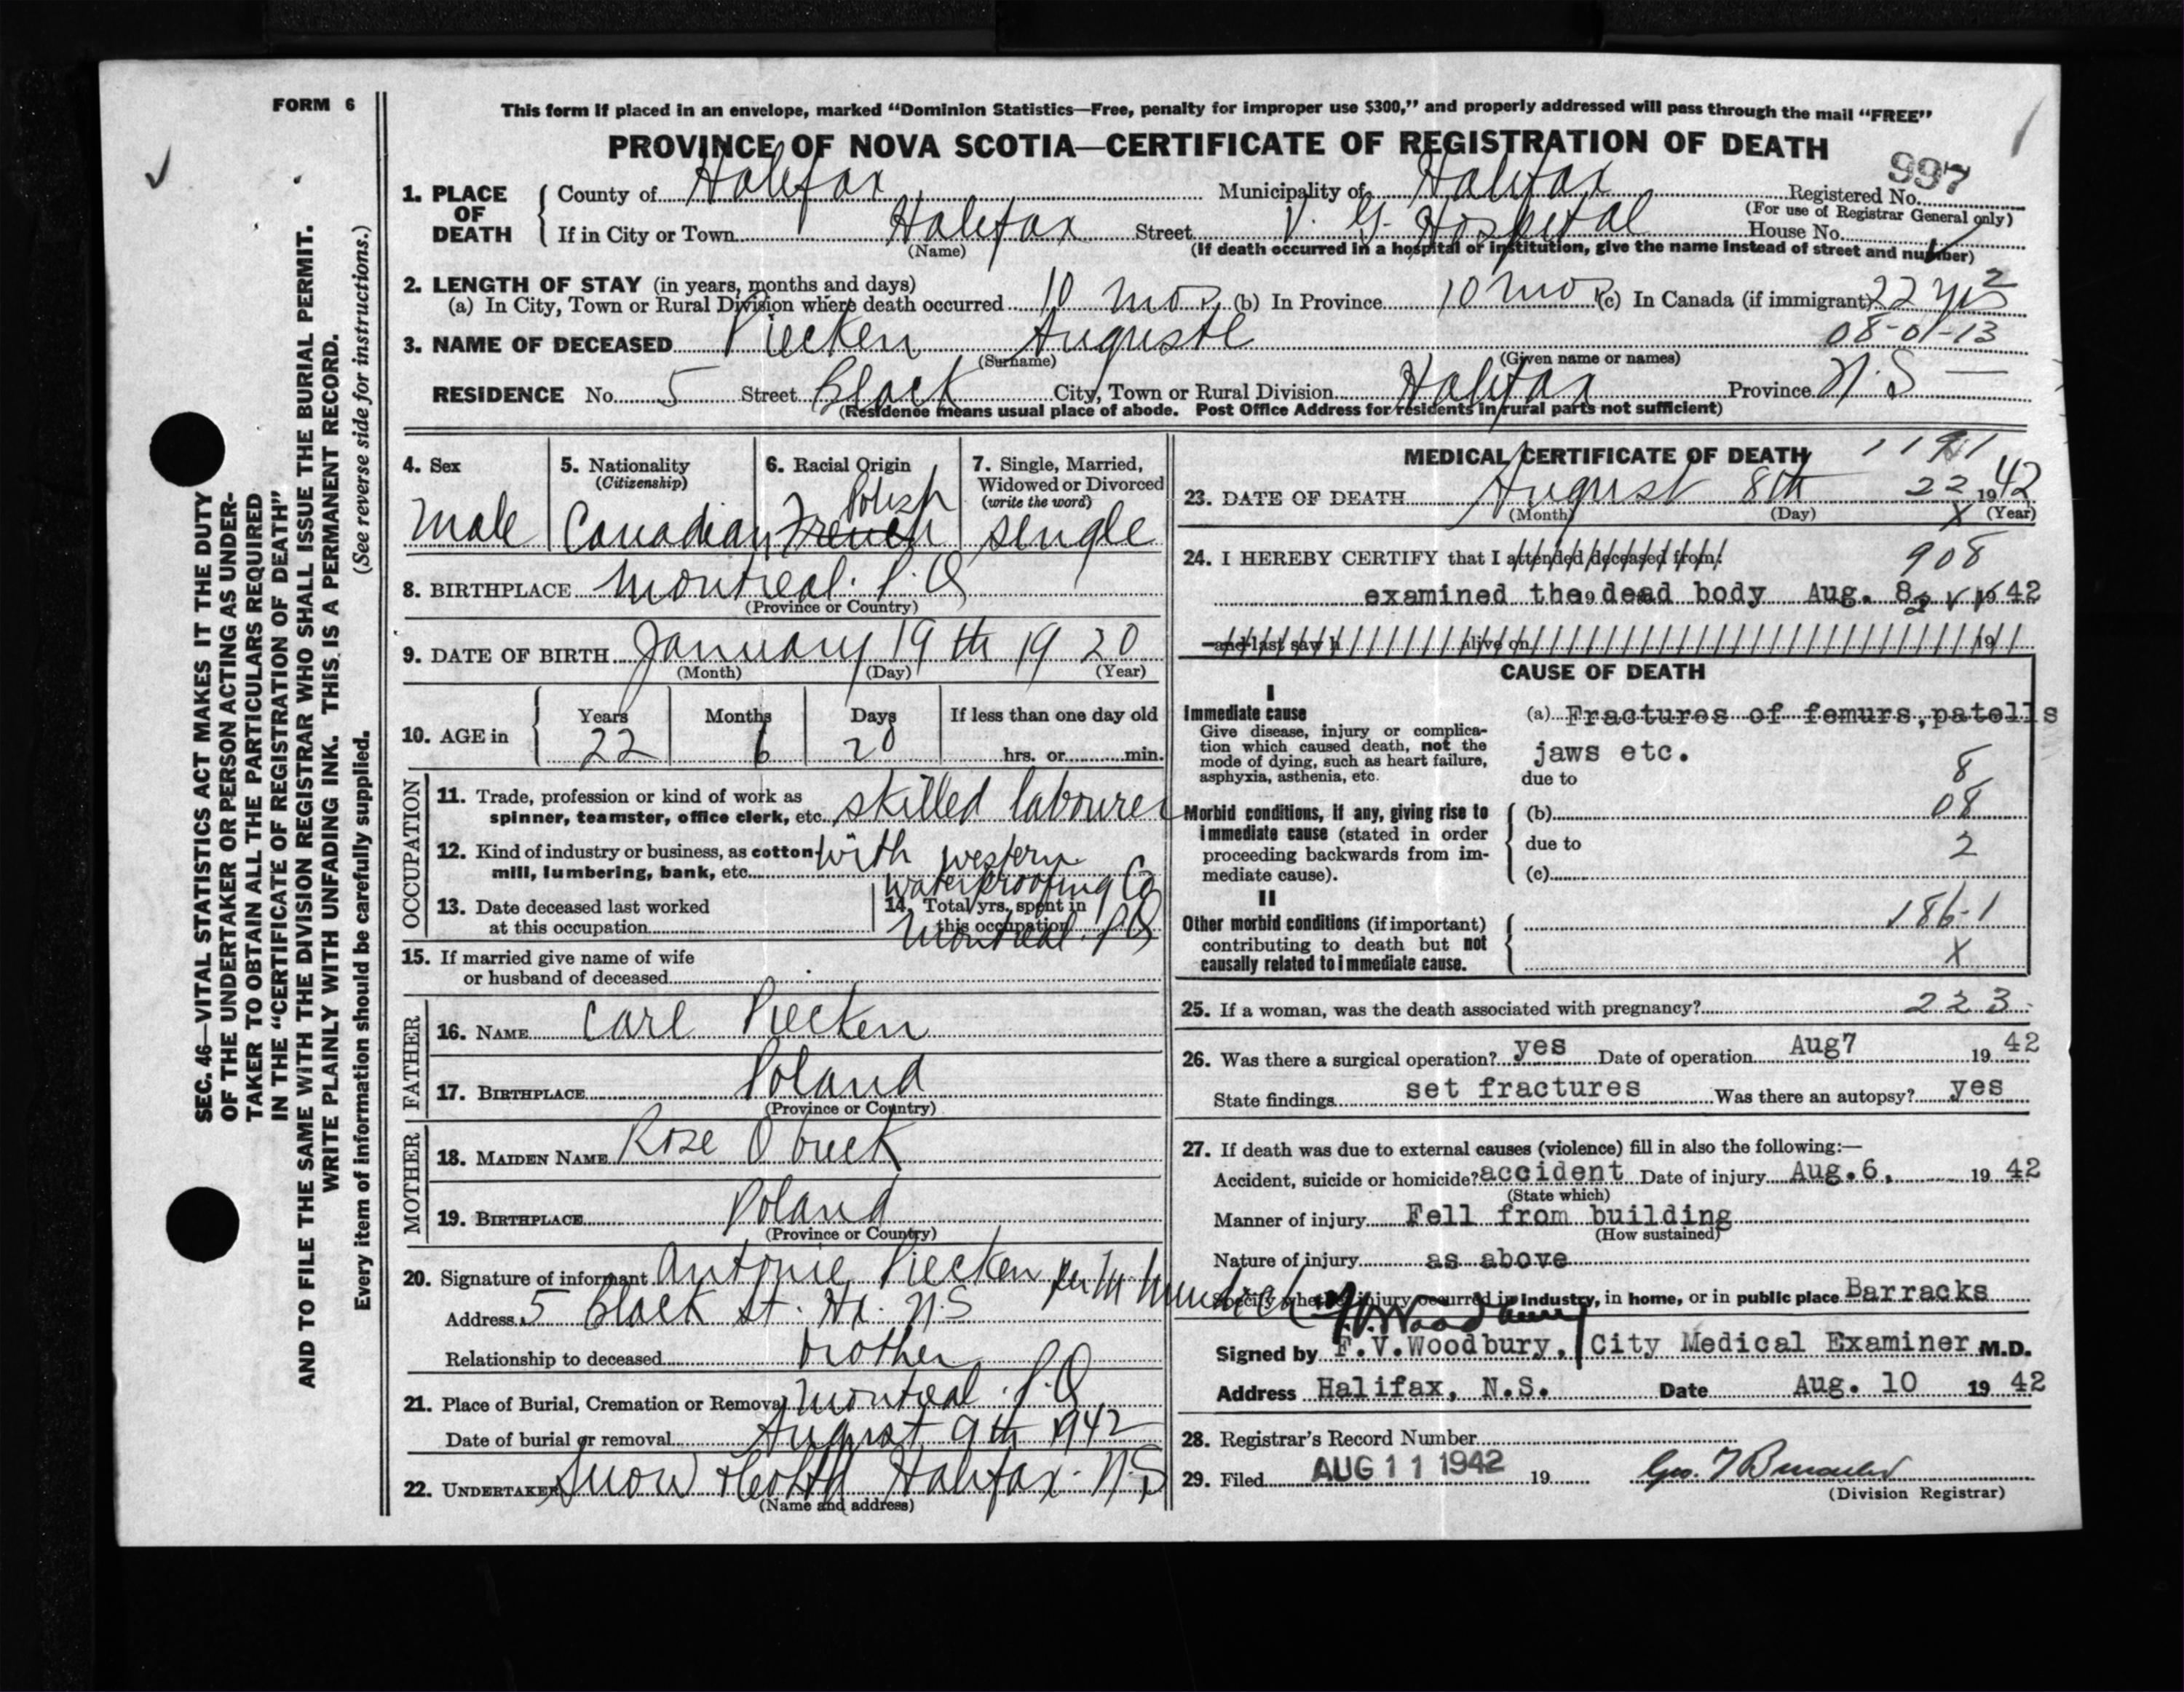 FORM 6
This form if placed in an envelope, marked “Dominion Statistics—Free, penalty for improper use $300,” and properly addressed will pass through the mail “FREE”
PROVINCE OF NOVA SCOTIA—CERTIFICATE OF REGISTRATION OF DEATH
997
1. PLACE OF DEATH
County of Halifax Municipality of Halifax Registered No.
(For use of Registrar General only)
If in City or Town Halifax Street V. G. Hospital House No.
(Name) (If death occurred in a hospital or institution, give the name instead of street and number)
2. LENGTH OF STAY (in years, months and days)
(a) In City, Town or Rural Division where death occurred 10 mos (b) In Province 10 mos (c) In Canada (if immigrant) 22 yrs 2
08-01-13
3. NAME OF DECEASED Piecken Auguste
(Surname) (Given name or names)
RESIDENCE No. 5 Street Black City, Town or Rural Division Halifax Province N.S
(Residence means usual place of abode. Post Office Address for residents in rural parts not sufficient)
4. Sex
Male
5. Nationality
(Citizenship)
Canadian
6. Racial Origin
Polish
French
7. Single, Married,
Widowed or Divorced
(write the word)
single
8. BIRTHPLACE Montreal. P.Q
(Province or Country)
9. DATE OF BIRTH January 19th 1920
(Month) (Day) (Year)
10. AGE in
Years Months Days If less than one day old
22 6 20 hrs. or min.
OCCUPATION
11. Trade, profession or kind of work as
spinner, teamster, office clerk, etc. skilled labourer
12. Kind of industry or business, as cotton
mill, lumbering, bank, etc. with western
waterproofing Co
13. Date deceased last worked
at this occupation
14. Total yrs. spent in
this occupation
Montreal. P.Q
15. If married give name of wife
or husband of deceased
FATHER
16. NAME Carl Piecken
17. BIRTHPLACE Poland
(Province or Country)
MOTHER
18. MAIDEN NAME Rose
19. BIRTHPLACE Poland
(Province or Country)
20. Signature of informant Antonie Piecken per M
Address 5 Black St. Hx. N.S
Relationship to deceased brother
21. Place of Burial, Cremation or Removal Montreal. P.Q
Date of burial or removal August 9th 1942
22. UNDERTAKER Snow & Co Ltd Halifax. N.S
(Name and address)
MEDICAL CERTIFICATE OF DEATH
23. DATE OF DEATH August 8th 22 1942
(Month) (Day) X (Year)
24. I HEREBY CERTIFY that I attended deceased from: 908
examined the dead body Aug. 8 1942
and last saw h alive on 19
CAUSE OF DEATH
I
Immediate cause
Give disease, injury or complica-
tion which caused death, not the
mode of dying, such as heart failure,
asphyxia, asthenia, etc.
(a) Fractures of femurs, patells
jaws etc.
due to 8
Morbid conditions, if any, giving rise to
immediate cause (stated in order
proceeding backwards from im-
mediate cause).
(b) 08
due to 2
(c)
II
Other morbid conditions (if important)
contributing to death but not
causally related to immediate cause.
186-1
X
25. If a woman, was the death associated with pregnancy? 223
26. Was there a surgical operation? yes Date of operation Aug7 19 42
State findings set fractures Was there an autopsy? yes
27. If death was due to external causes (violence) fill in also the following:—
Accident, suicide or homicide? accident Date of injury Aug.6, 19 42
(State which)
Manner of injury Fell from building
(How sustained)
Nature of injury as above
Specify whether injury occurred in industry, in home, or in public place Barracks
Signed by F.V.Woodbury, City Medical Examiner M.D.
Address Halifax, N.S. Date Aug. 10 19 42
28. Registrar's Record Number
29. Filed AUG 11 1942 19
(Division Registrar)
SEC. 46—VITAL STATISTICS ACT MAKES IT THE DUTY
OF THE UNDERTAKER OR PERSON ACTING AS UNDER-
TAKER TO OBTAIN ALL THE PARTICULARS REQUIRED
IN THE “CERTIFICATE OF REGISTRATION OF DEATH”
AND TO FILE THE SAME WITH THE DIVISION REGISTRAR WHO SHALL ISSUE THE BURIAL PERMIT.
WRITE PLAINLY WITH UNFADING INK. THIS IS A PERMANENT RECORD.
Every item of information should be carefully supplied. (See reverse side for instructions.)